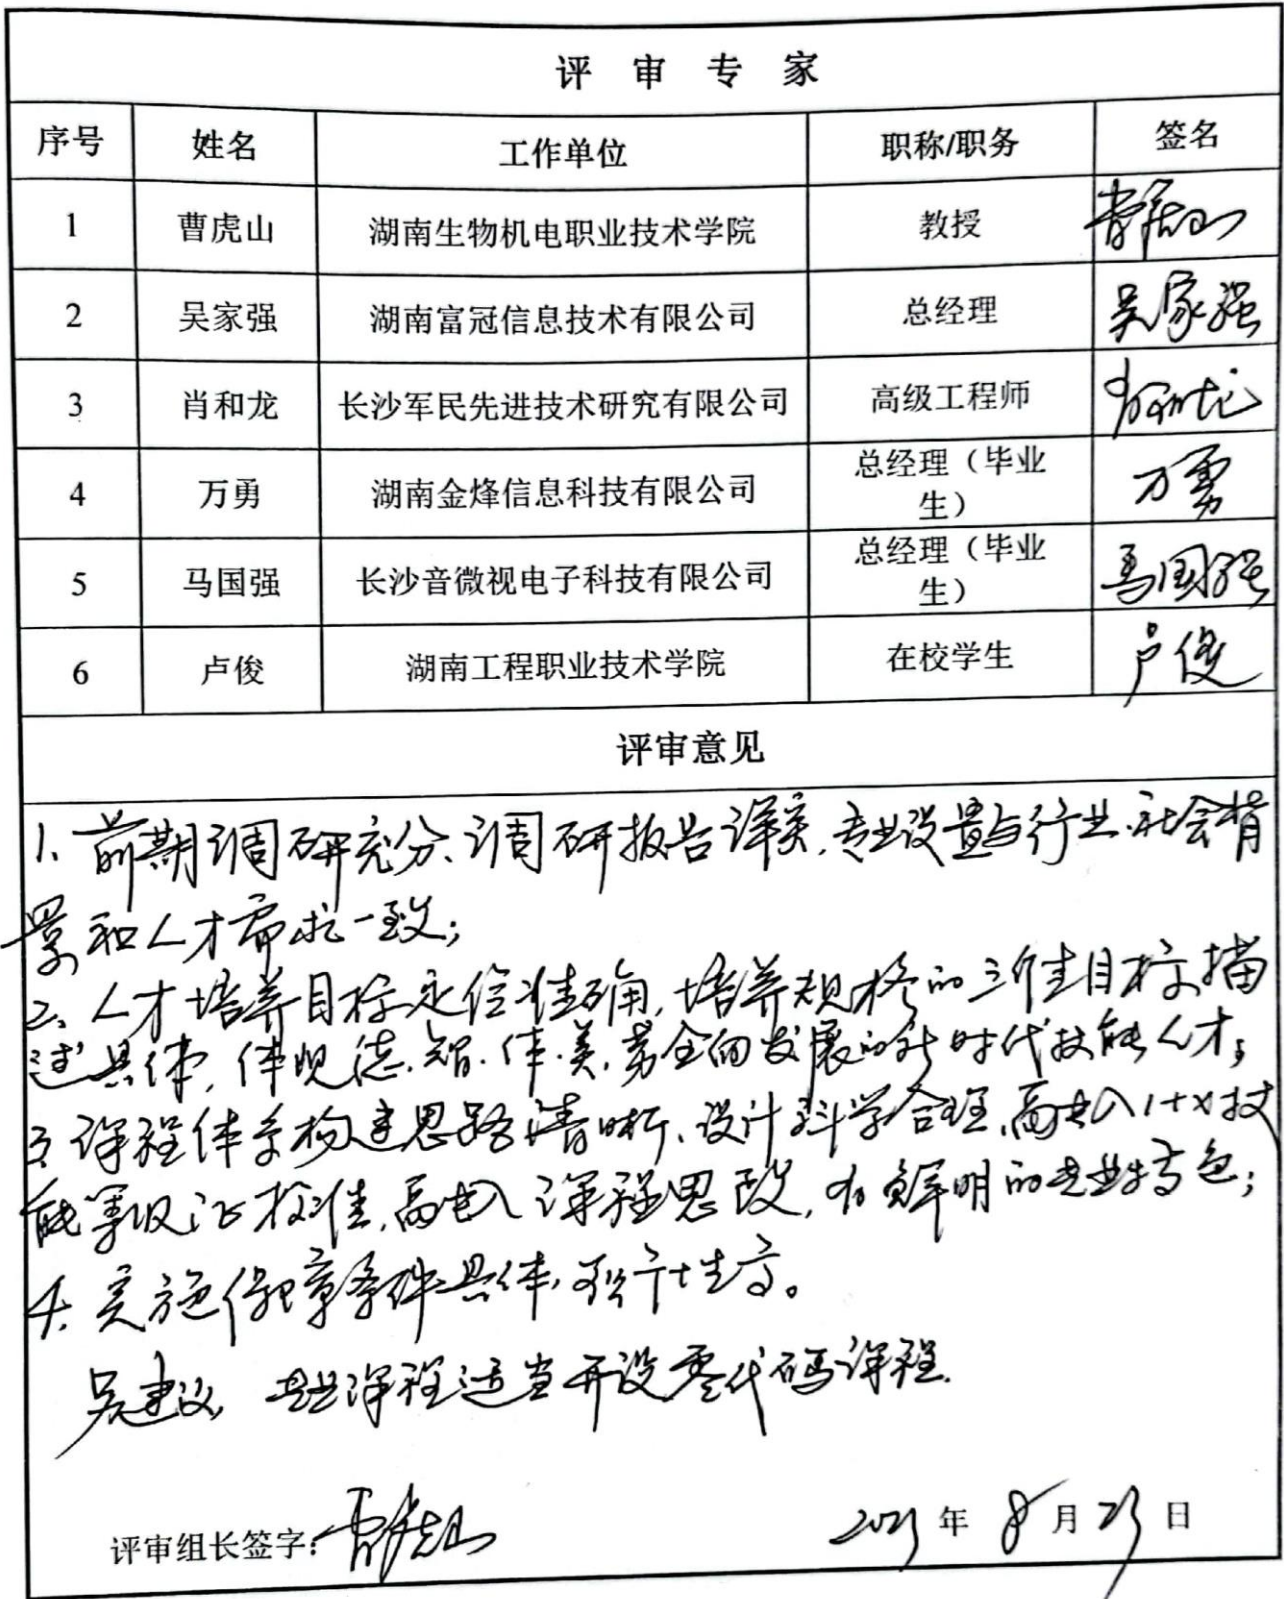 评审专家
序号 姓名 工作单位 职称/职务 签名
1 曹虎山 湖南生物机电职业技术学院 教授 曹虎山
2 吴家强 湖南富冠信息技术有限公司 总经理 吴家强
3 肖和龙 长沙军民先进技术研究有限公司 高级工程师 肖和龙
4 万勇 湖南金烽信息科技有限公司 总经理（毕业
生） 万勇
5 马国强 长沙音微视电子科技有限公司 总经理（毕业
生） 马国强
6 卢俊 湖南工程职业技术学院 在校学生 卢俊
评审意见
1、前期调研充分、调研报告详实，专业设置与行业、社会背
景和人才需求一致；
2、人才培养目标定位准确，培养规格的三维目标描
述具体，体现德、智、体、美、劳全面发展的新时代技能人才；
3、课程体系构建思路清晰、设计科学合理，融入1+X技
能等级证标准，融入课程思政，有鲜明的专业特色；
4、实施保障条件具体，可行性高。
建议，专业课程适当开设零代码课程.
评审组长签字：曹虎山 年 8 月 23 日